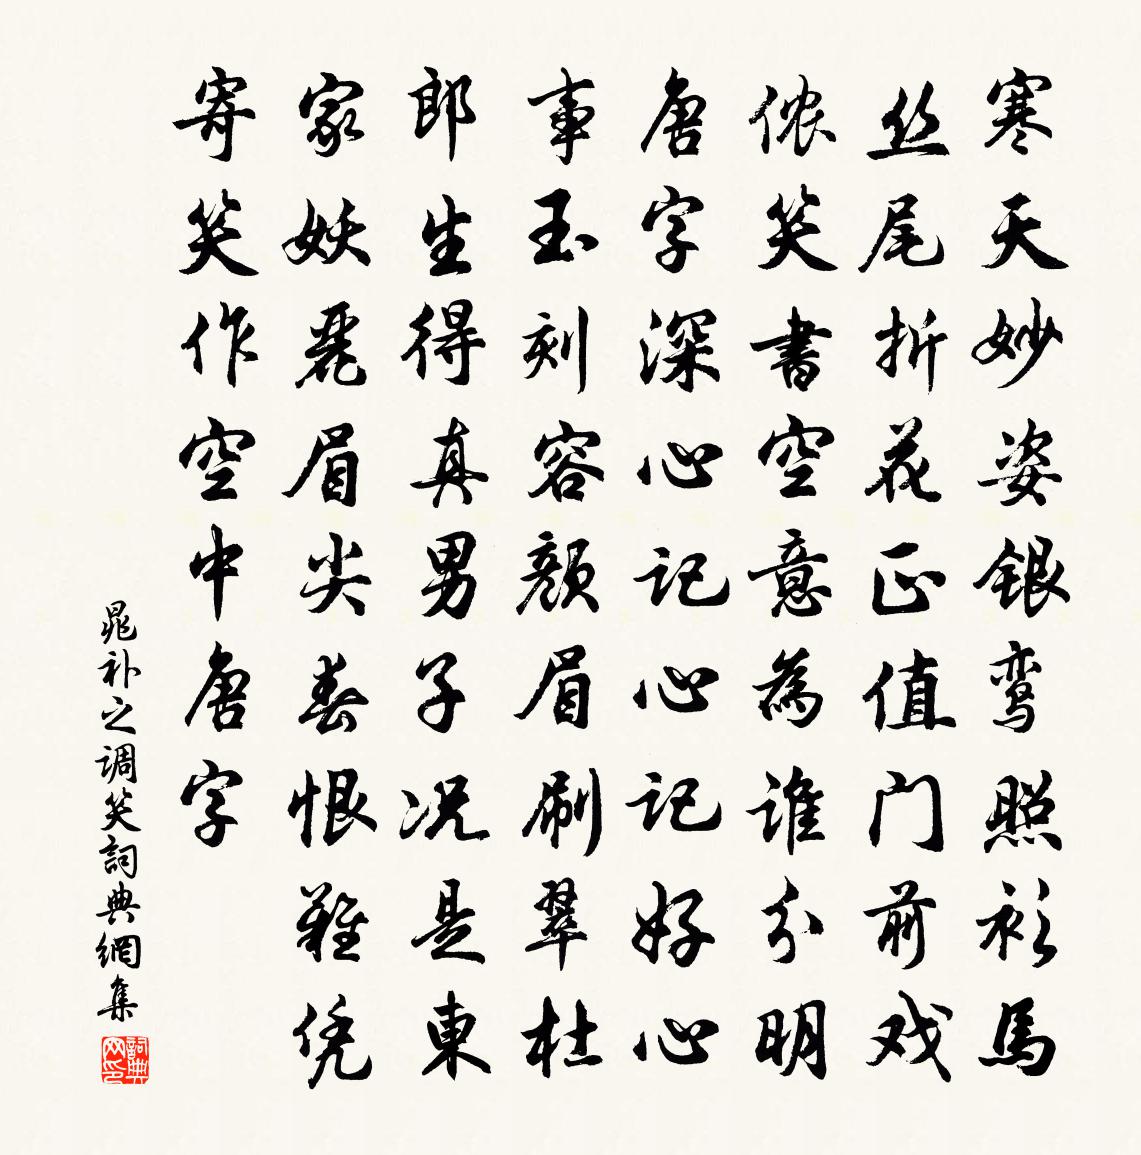 寒天妙姿银鸾照衫馬
丝尾折花正值门前戏
侬笑書空意為谁分明
唐字深心记心记好心
事玉刻容颜眉刷翠杜
郎生得真男子况是東
家妖麗眉尖春恨難凭
寄笑作空中唐字
晁补之调笑詞典網集
詞典网印